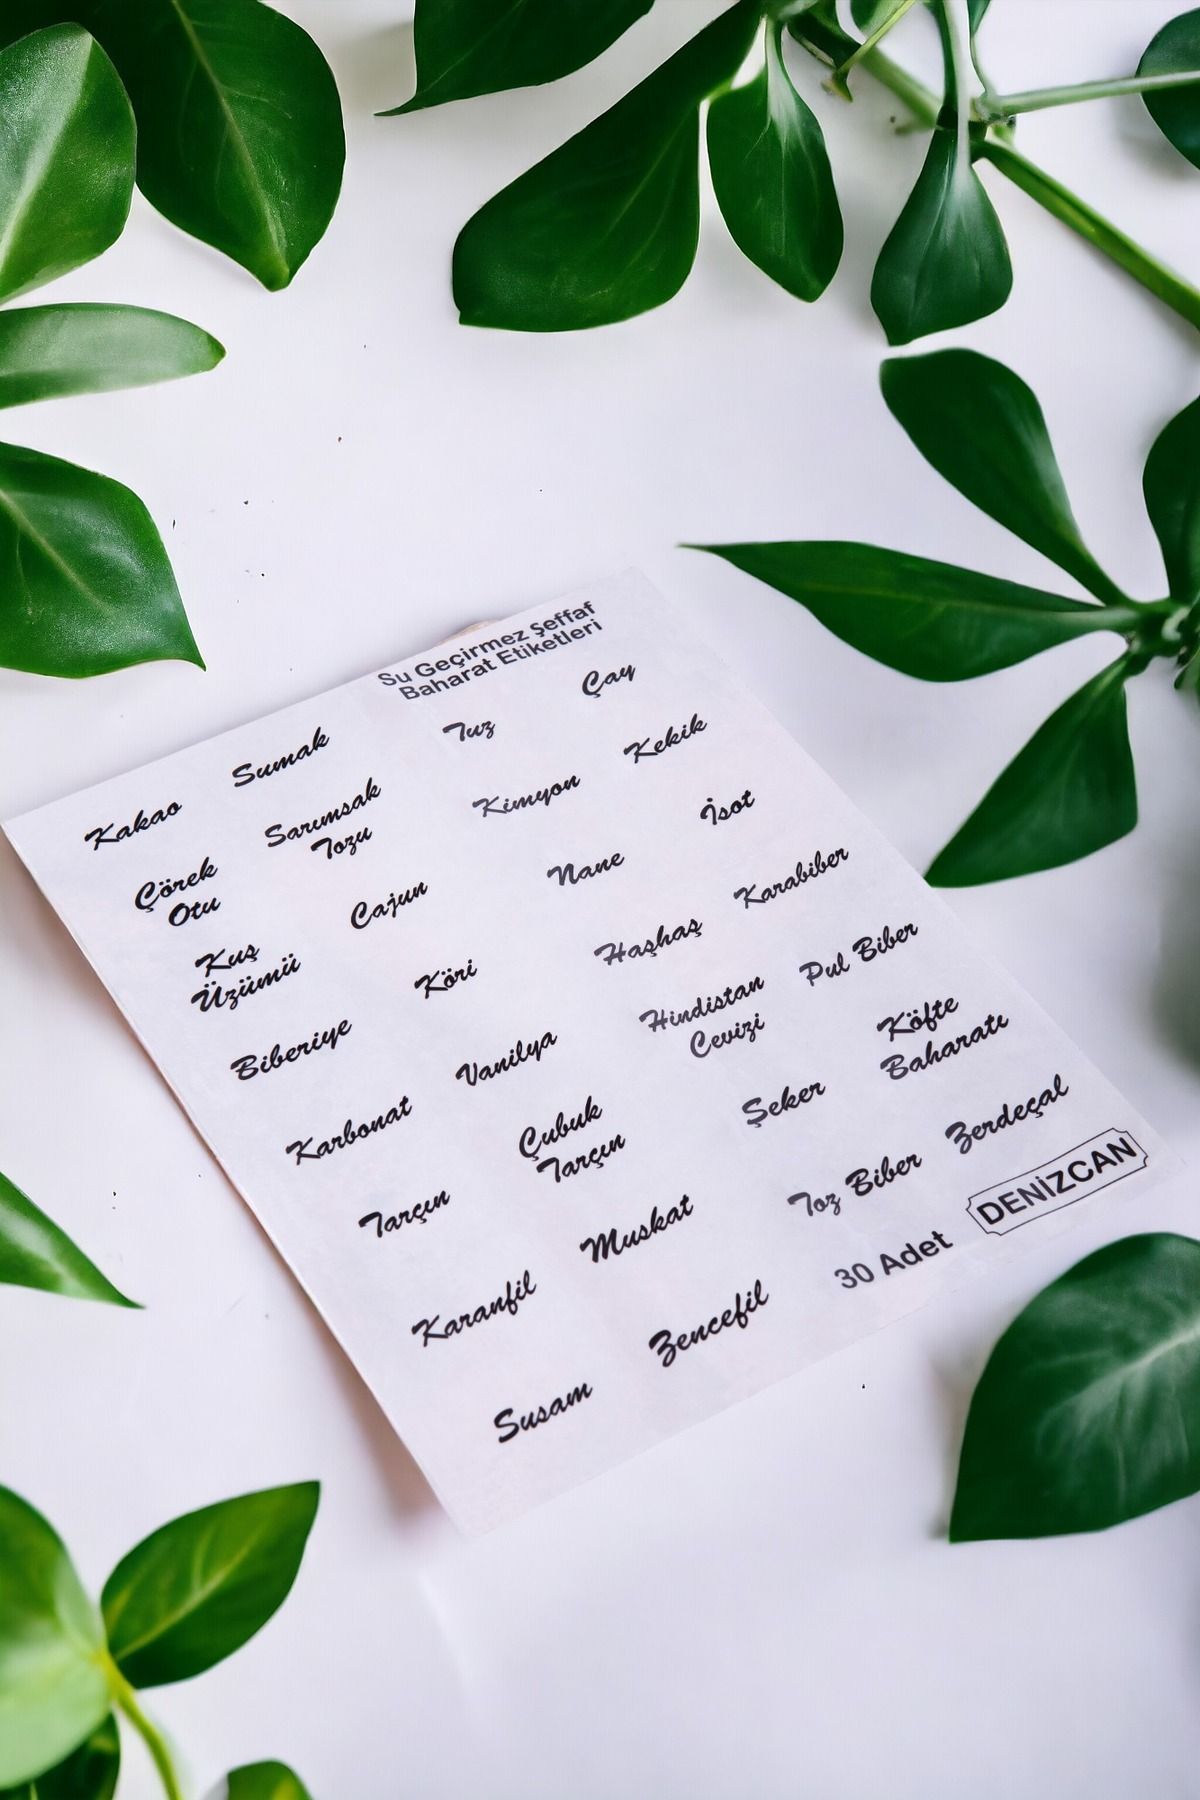 Su Geçirmez Şeffaf
Baharat Etiketleri
Kakao Sumak Tuz Çay
Çörek
Otu
Sarımsak
Tozu
Kimyon Kekik
Kuş
Üzümü
Cajun Nane İsot
Biberiye Köri Haşhaş Karabiber
Karbonat Vanilya
Hindistan
Cevizi
Pul Biber
Tarçın
Çubuk
Tarçın
Şeker
Köfte
Baharatı
Karanfil Muskat Toz Biber Zerdeçal
Susam Zencefil
30 Adet DENİZCAN